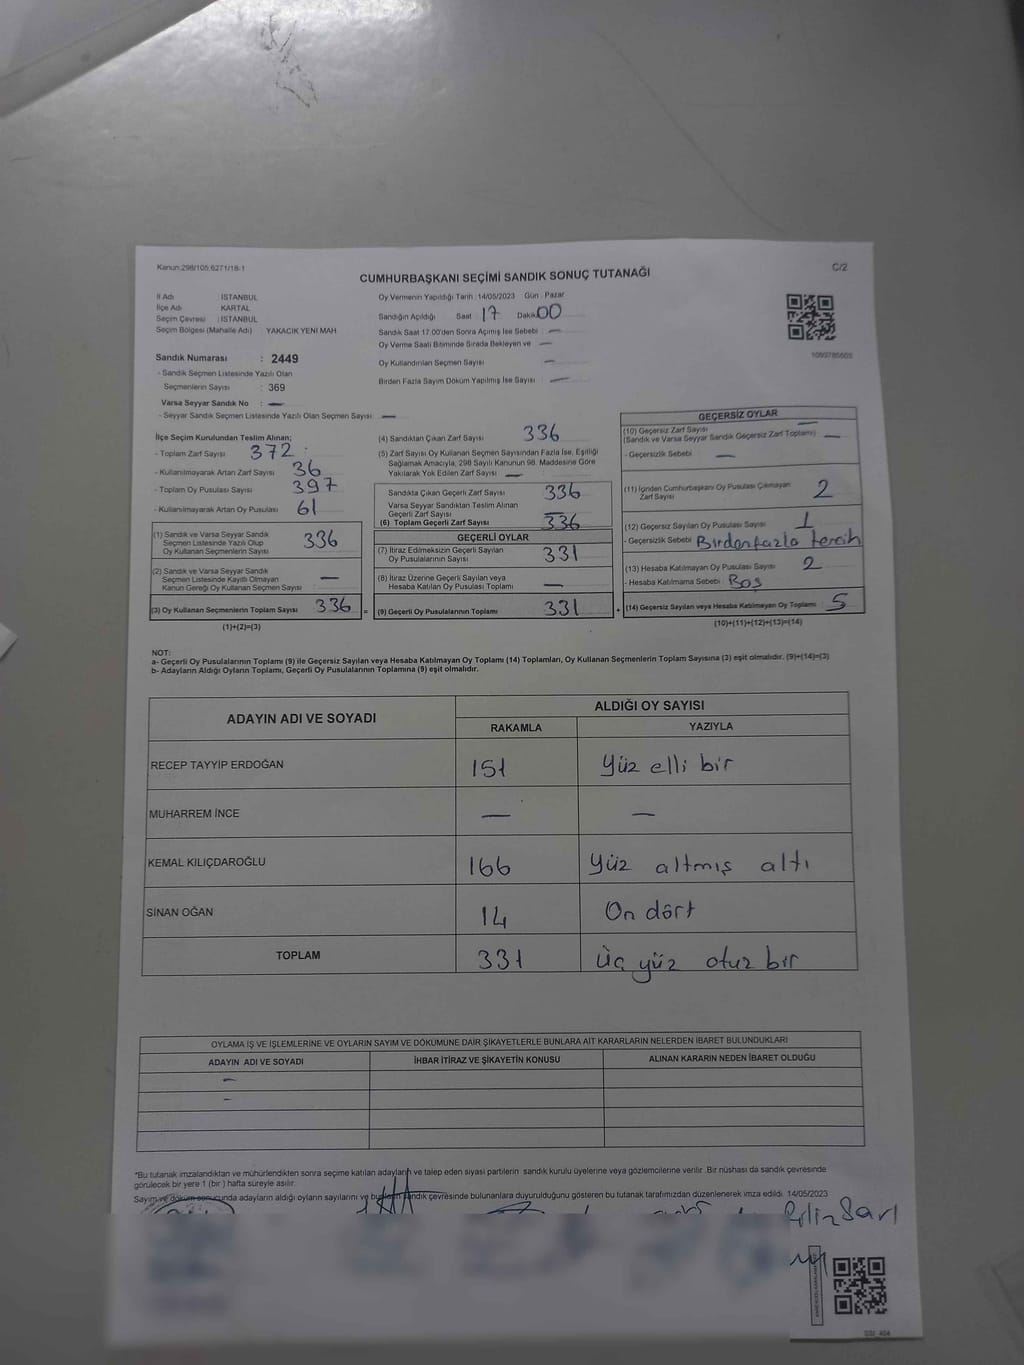 Kanun:298/105,6271/18-1
C/2
CUMHURBAŞKANI SEÇİMİ SANDIK SONUÇ TUTANAĞI
İl Adı : İSTANBUL
İlçe Adı : KARTAL
Seçim Çevresi : İSTANBUL
Seçim Bölgesi (Mahalle Adı) : YAKACIK YENİ MAH
Sandık Numarası : 2449
- Sandık Seçmen Listesinde Yazılı Olan
Seçmenlerin Sayısı : 369
Varsa Seyyar Sandık No : —
- Seyyar Sandık Seçmen Listesinde Yazılı Olan Seçmen Sayısı : —
Oy Vermenin Yapıldığı Tarih : 14/05/2023 Gün : Pazar
Sandığın Açıldığı Saat : 17 Dakika 00
Sandık Saat 17.00'den Sonra Açılmış İse Sebebi : —
Oy Verme Saati Bitiminde Sırada Bekleyen ve —
Oy Kullandırılan Seçmen Sayısı —
Birden Fazla Sayım Döküm Yapılmış İse Sayısı : —
İlçe Seçim Kurulundan Teslim Alınan;
- Toplam Zarf Sayısı : 372
- Kullanılmayarak Artan Zarf Sayısı : 36
- Toplam Oy Pusulası Sayısı : 397
- Kullanılmayarak Artan Oy Pusulası : 61
(1) Sandık ve Varsa Seyyar Sandık
Seçmen Listesinde Yazılı Olup
Oy Kullanan Seçmenlerin Sayısı 336
(2) Sandık ve Varsa Seyyar Sandık
Seçmen Listesinde Kayıtlı Olmayan
Kanun Gereği Oy Kullanan Seçmen Sayısı —
(3) Oy Kullanan Seçmenlerin Toplam Sayısı 336 =
(1)+(2)=(3)
(4) Sandıktan Çıkan Zarf Sayısı 336
(5) Zarf Sayısı Oy Kullanan Seçmen Sayısından Fazla İse, Eşitliği
Sağlamak Amacıyla, 298 Sayılı Kanunun 98. Maddesine Göre
Yakılarak Yok Edilen Zarf Sayısı —
Sandıkta Çıkan Geçerli Zarf Sayısı 336
Varsa Seyyar Sandıktan Teslim Alınan
Geçerli Zarf Sayısı —
(6) Toplam Geçerli Zarf Sayısı 336
GEÇERLİ OYLAR
(7) İtiraz Edilmeksizin Geçerli Sayılan
Oy Pusulalarının Sayısı 331
(8) İtiraz Üzerine Geçerli Sayılan veya
Hesaba Katılan Oy Pusulası Toplamı —
(9) Geçerli Oy Pusulalarının Toplamı 331 +
GEÇERSİZ OYLAR
(10) Geçersiz Zarf Sayısı
(Sandık ve Varsa Seyyar Sandık Geçersiz Zarf Toplamı) —
- Geçersizlik Sebebi : —
(11) İçinden Cumhurbaşkanı Oy Pusulası Çıkmayan
Zarf Sayısı 2
(12) Geçersiz Sayılan Oy Pusulası Sayısı 1
- Geçersizlik Sebebi : Birden fazla tercih
(13) Hesaba Katılmayan Oy Pusulası Sayısı 2
- Hesaba Katılmama Sebebi : Boş
(14) Geçersiz Sayılan veya Hesaba Katılmayan Oy Toplamı 5
(10)+(11)+(12)+(13)=(14)
NOT:
a- Geçerli Oy Pusulalarının Toplamı (9) ile Geçersiz Sayılan veya Hesaba Katılmayan Oy Toplamı (14) Toplamları, Oy Kullanan Seçmenlerin Toplam Sayısına (3) eşit olmalıdır. (9)+(14)=(3)
b- Adayların Aldığı Oyların Toplamı, Geçerli Oy Pusulalarının Toplamına (9) eşit olmalıdır.
ADAYIN ADI VE SOYADI
ALDIĞI OY SAYISI
RAKAMLA YAZIYLA
RECEP TAYYİP ERDOĞAN 151 Yüz elli bir
MUHARREM İNCE — —
KEMAL KILIÇDAROĞLU 166 Yüz altmış altı
SİNAN OĞAN 14 On dört
TOPLAM 331 üç yüz otuz bir
OYLAMA İŞ VE İŞLEMLERİNE VE OYLARIN SAYIM VE DÖKÜMÜNE DAİR ŞİKAYETLERLE BUNLARA AİT KARARLARIN NELERDEN İBARET BULUNDUKLARI
ADAYIN ADI VE SOYADI İHBAR İTİRAZ VE ŞİKAYETİN KONUSU ALINAN KARARIN NEDEN İBARET OLDUĞU
—
—
*Bu tutanak imzalandıktan ve mühürlendikten sonra seçime katılan adayların ve talep eden siyasi partilerin sandık kurulu üyelerine veya gözlemcilerine verilir. Bir nüshası da sandık çevresinde
görülecek bir yere 1 (bir) hafta süreyle asılır.
Sayım ve döküm sonucunda adayların aldığı oyların sayılarını ve sandık çevresinde bulunanlara duyurulduğunu gösteren bu tutanak tarafımızdan düzenlenerek imza edildi. 14/05/2023